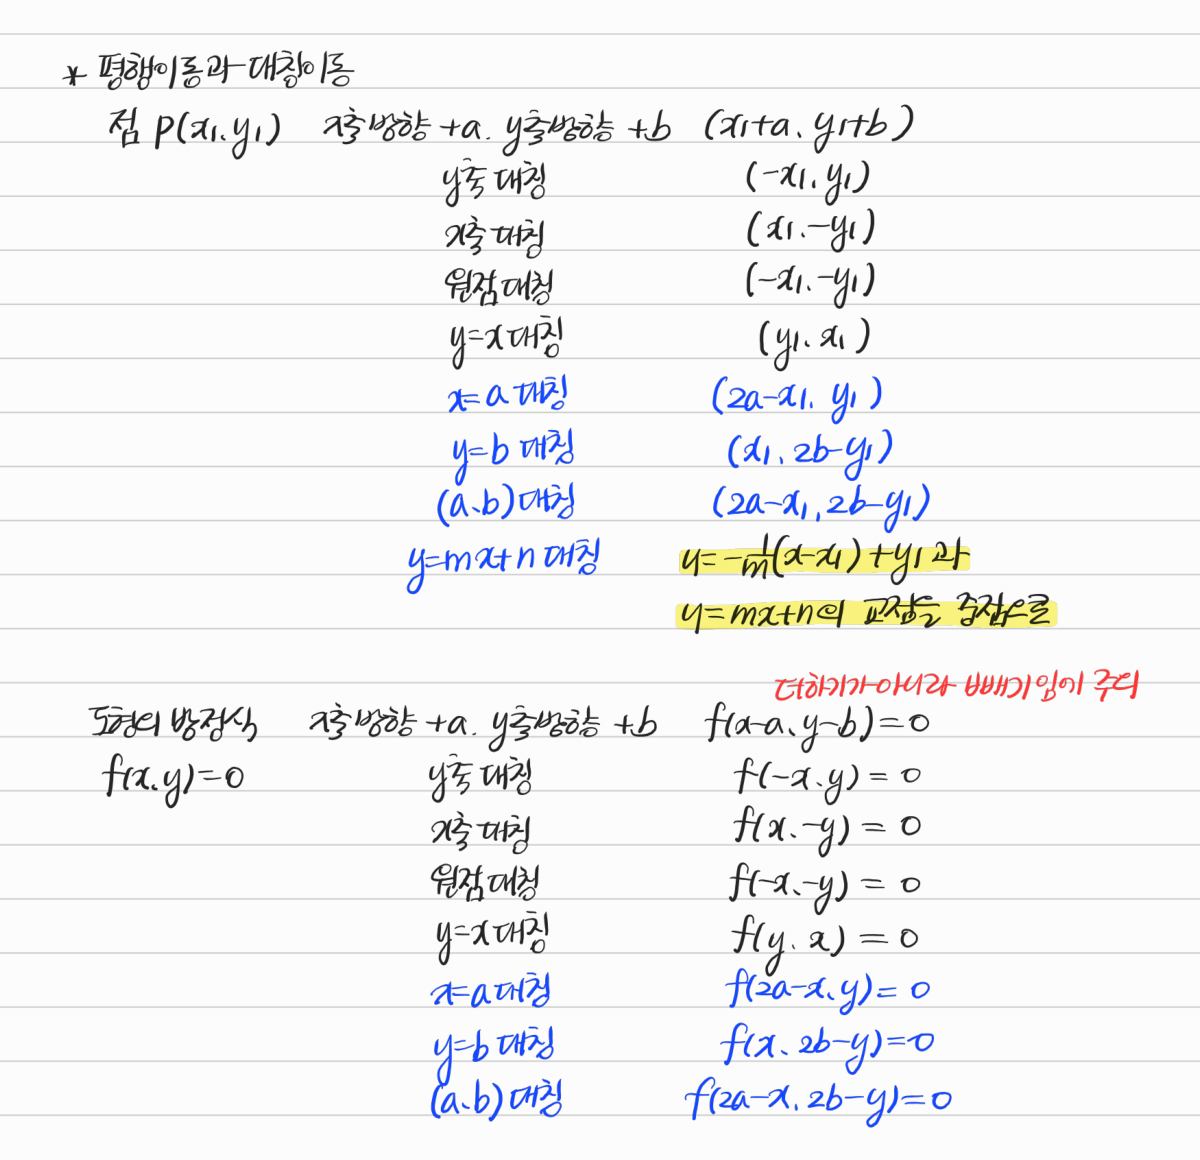 * 평행이동과 대칭이동
점 P(x₁, y₁) x축 방향 +a, y축방향 +b (x₁+a, y₁+b)
y축 대칭 (-x₁, y₁)
x축 대칭 (x₁, -y₁)
원점 대칭 (-x₁, -y₁)
y=x 대칭 (y₁, x₁)
x=a 대칭 (2a-x₁, y₁)
y=b 대칭 (x₁, 2b-y₁)
(a, b) 대칭 (2a-x₁, 2b-y₁)
y=mx+n 대칭 y=-1/m(x-x₁)+y₁ 과
y=mx+n의 교점을 중점으로
더하기가 아니라 빼기임에 주의
도형의 방정식 x축 방향 +a, y축방향 +b f(x-a, y-b)=0
f(x, y)=0 y축 대칭 f(-x, y)=0
x축 대칭 f(x, -y)=0
원점 대칭 f(-x, -y)=0
y=x 대칭 f(y, x)=0
x=a 대칭 f(2a-x, y)=0
y=b 대칭 f(x, 2b-y)=0
(a, b) 대칭 f(2a-x, 2b-y)=0